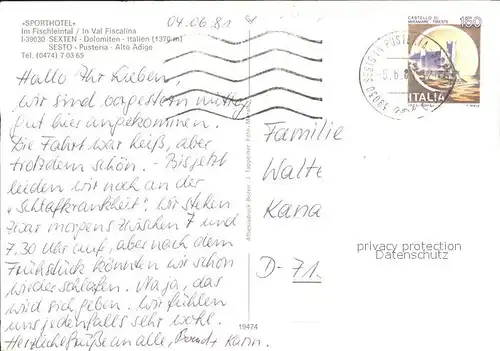 «SPORTHOTEL»
Im Fischleintal / In Val Fiscalina
I-39030 SEXTEN - Dolomiten - Italien (1370 m)
SESTO - Pusteria - Alto Adige
Tel. (0474) 7 03 65
04.06.81
Hallo Ihr Lieben,
wir sind vorgestern mittag
gut hier angekommen.
Die Fahrt war heiß, aber
trotzdem schön. - Bis jetzt
leiden wir noch an der
„Schlafkrankheit". Wir stehen
zwar morgens zwischen 7 und
7.30 Uhr auf, aber nach dem
Frühstück könnten wir schon
wieder schlafen. Na ja, das
wird sich geben. Wir fühlen
uns jedenfalls sehr wohl.
Herzliche Grüße an alle, Bernd + Karin.
19474
CASTELLO DI
MIRAMARE. TRIESTE
150
ITALIA
39030 SESTO IN PUSTERIA
Familie
Walte
Kana
D-71
privacy protection
Datenschutz